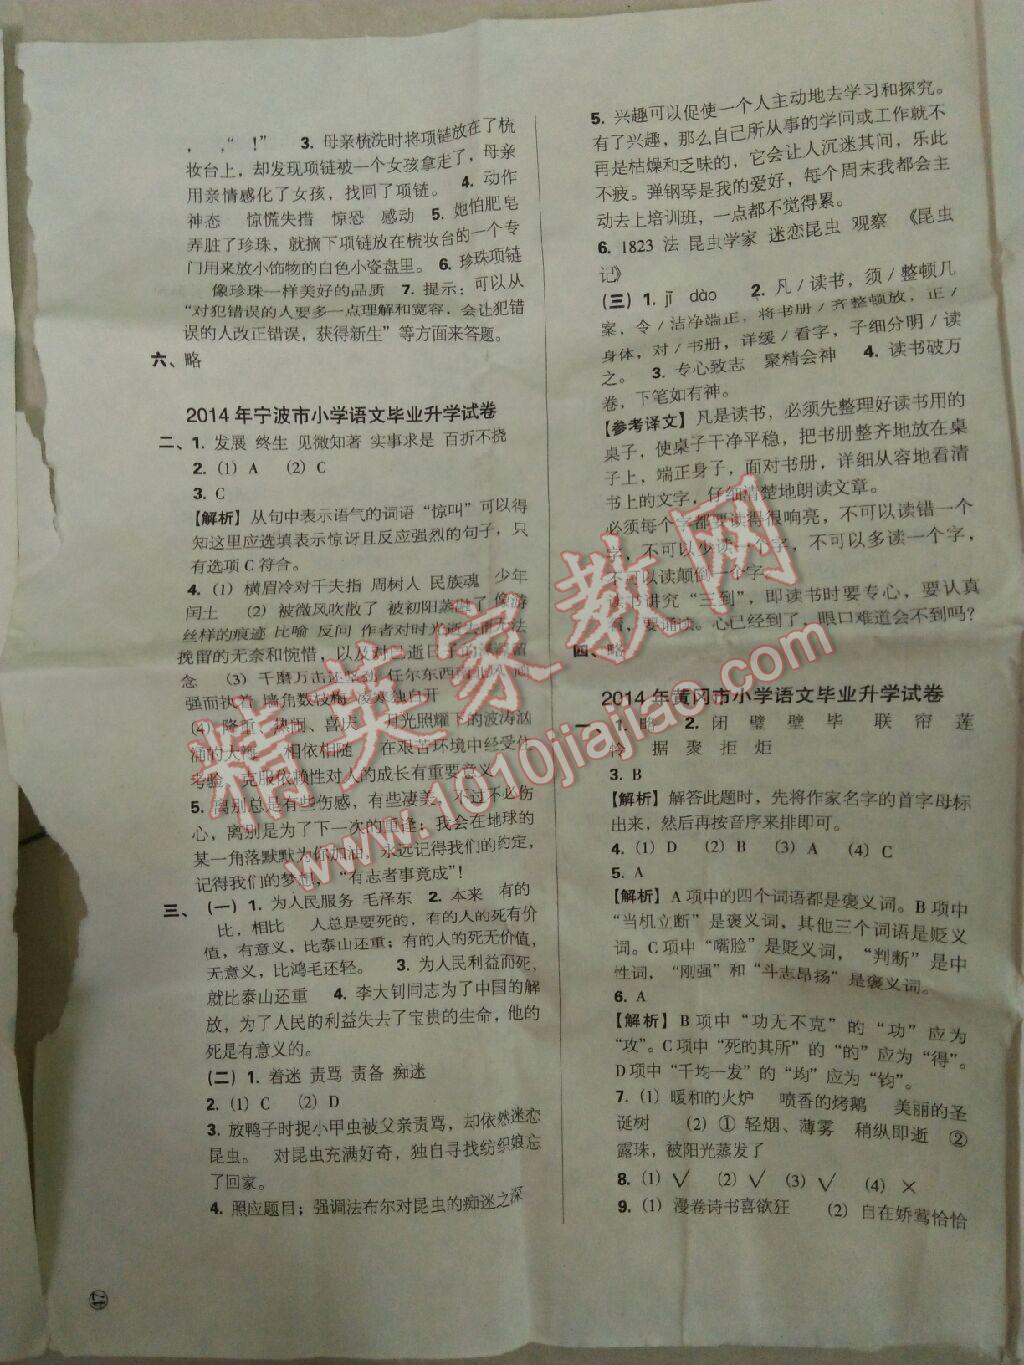 ， ，“ ！” 3. 母亲梳洗时将项链放在了梳
妆台上，却发现项链被一个女孩拿走了，母亲
用亲情感化了女孩，找回了项链。 4. 动作
神态 惊慌失措 惊恐 感动 5. 她怕肥皂
弄脏了珍珠，就摘下项链放在梳妆台的一个专
门用来放小饰物的白色小瓷盘里。 6. 珍珠项链
像珍珠一样美好的品质 7. 提示：可以从
“对犯错误的人要多一点理解和宽容，会让犯错
误的人改正错误，获得新生”等方面来答题。
六、略
2014 年宁波市小学语文毕业升学试卷
二、1. 发展 终生 见微知著 实事求是 百折不挠
2. (1) A (2) C
3. C
【解析】从句中表示语气的词语“惊叫”可以得
知这里应选填表示惊讶且反应强烈的句子，只
有选项 C 符合。
4. (1) 横眉冷对千夫指 周树人 民族魂 少年
闰土 (2) 被微风吹散了 被初阳蒸融了 像游
丝样的痕迹 比喻 反问 作者对时光逝去而无法
挽留的无奈和惋惜，以及对已逝日子的深深留
念 (3) 千磨万击还坚劲 任尔东西南北风 顽
强而执着 墙角数枝梅 凌寒独自开
(4) 隆重、热闹、喜庆 月光照耀下的波涛汹
涌的大海 相依相随 在艰苦环境中经受住
考验 克服依赖性对人的成长有重要意义
5. 离别总是有些伤感，有些凄美，不过不必伤
心，离别是为了下一次的重逢；我会在地球的
某一角落默默为你加油，永远记得我们的约定，
记得我们的梦想，“有志者事竟成”！
三、(一) 1. 为人民服务 毛泽东 2. 本来 有的
比，相比 人总是要死的，有的人的死有价
值，有意义，比泰山还重；有的人的死无价值，
无意义，比鸿毛还轻。 3. 为人民利益而死，
就比泰山还重 4. 李大钊同志为了中国的解
放，为了人民的利益失去了宝贵的生命，他的
死是有意义的。
(二) 1. 着迷 责骂 责备 痴迷
2. (1) C (2) D
3. 放鸭子时捉小甲虫被父亲责骂，却依然迷恋
昆虫。 对昆虫充满好奇，独自寻找纺织娘忘
了回家。
4. 照应题目；强调法布尔对昆虫的痴迷之深
5. 兴趣可以促使一个人主动地去学习和探究。
有了兴趣，那么自己所从事的学问或工作就不
再是枯燥和乏味的，它会让人沉迷其间，乐此
不疲。弹钢琴是我的爱好，每个周末我都会主
动去上培训班，一点都不觉得累。
6. 1823 法 昆虫学家 迷恋昆虫 观察 《昆虫
记》
(三) 1. jī dào 2. 凡/读书，须/整顿几
案，令/洁净端正，将书册/齐整顿放，正/
身体，对/书册，详缓/看字，子细分明/读
之。 3. 专心致志 聚精会神 4. 读书破万
卷，下笔如有神。
【参考译文】凡是读书，必须先整理好读书用的
桌子，使桌子干净平稳，把书册整齐地放在桌
子上，端正身子，面对书册，详细从容地看清
书上的文字，仔细清楚地朗读文章。
必须每个字都要读得很响亮，不可以读错一个
字，不可以少读一个字，不可以多读一个字，
不可以读颠倒一个字。
读书讲究“三到”，即读书时要专心，要认真
看，要诵读。心已经到了，眼口难道会不到吗？
四、略
2014 年黄冈市小学语文毕业升学试卷
一、1. 略 2. 闭 璧 壁 毕 联 帘 莲
怜 据 聚 拒 炬
3. B
【解析】解答此题时，先将作家名字的首字母标
出来，然后再按音序来排即可。
4. (1) D (2) B (3) A (4) C
5. A
【解析】A 项中的四个词语都是褒义词。B 项中
“当机立断”是褒义词，其他三个词语是贬义
词。C 项中“嘴脸”是贬义词，“判断”是中
性词，“刚强”和“斗志昂扬”是褒义词。
6. A
【解析】B 项中“功无不克”的“功”应为
“攻”。C 项中“死的其所”的“的”应为“得”。
D 项中“千均一发”的“均”应为“钧”。
7. (1) 暖和的火炉 喷香的烤鹅 美丽的圣
诞树 (2) ① 轻烟、薄雾 稍纵即逝 ②
露珠，被阳光蒸发了
8. (1) √ (2) √ (3) √ (4) ×
9. (1) 漫卷诗书喜欲狂 (2) 自在娇莺恰恰
精英家教网
www.1010jiajiao.com